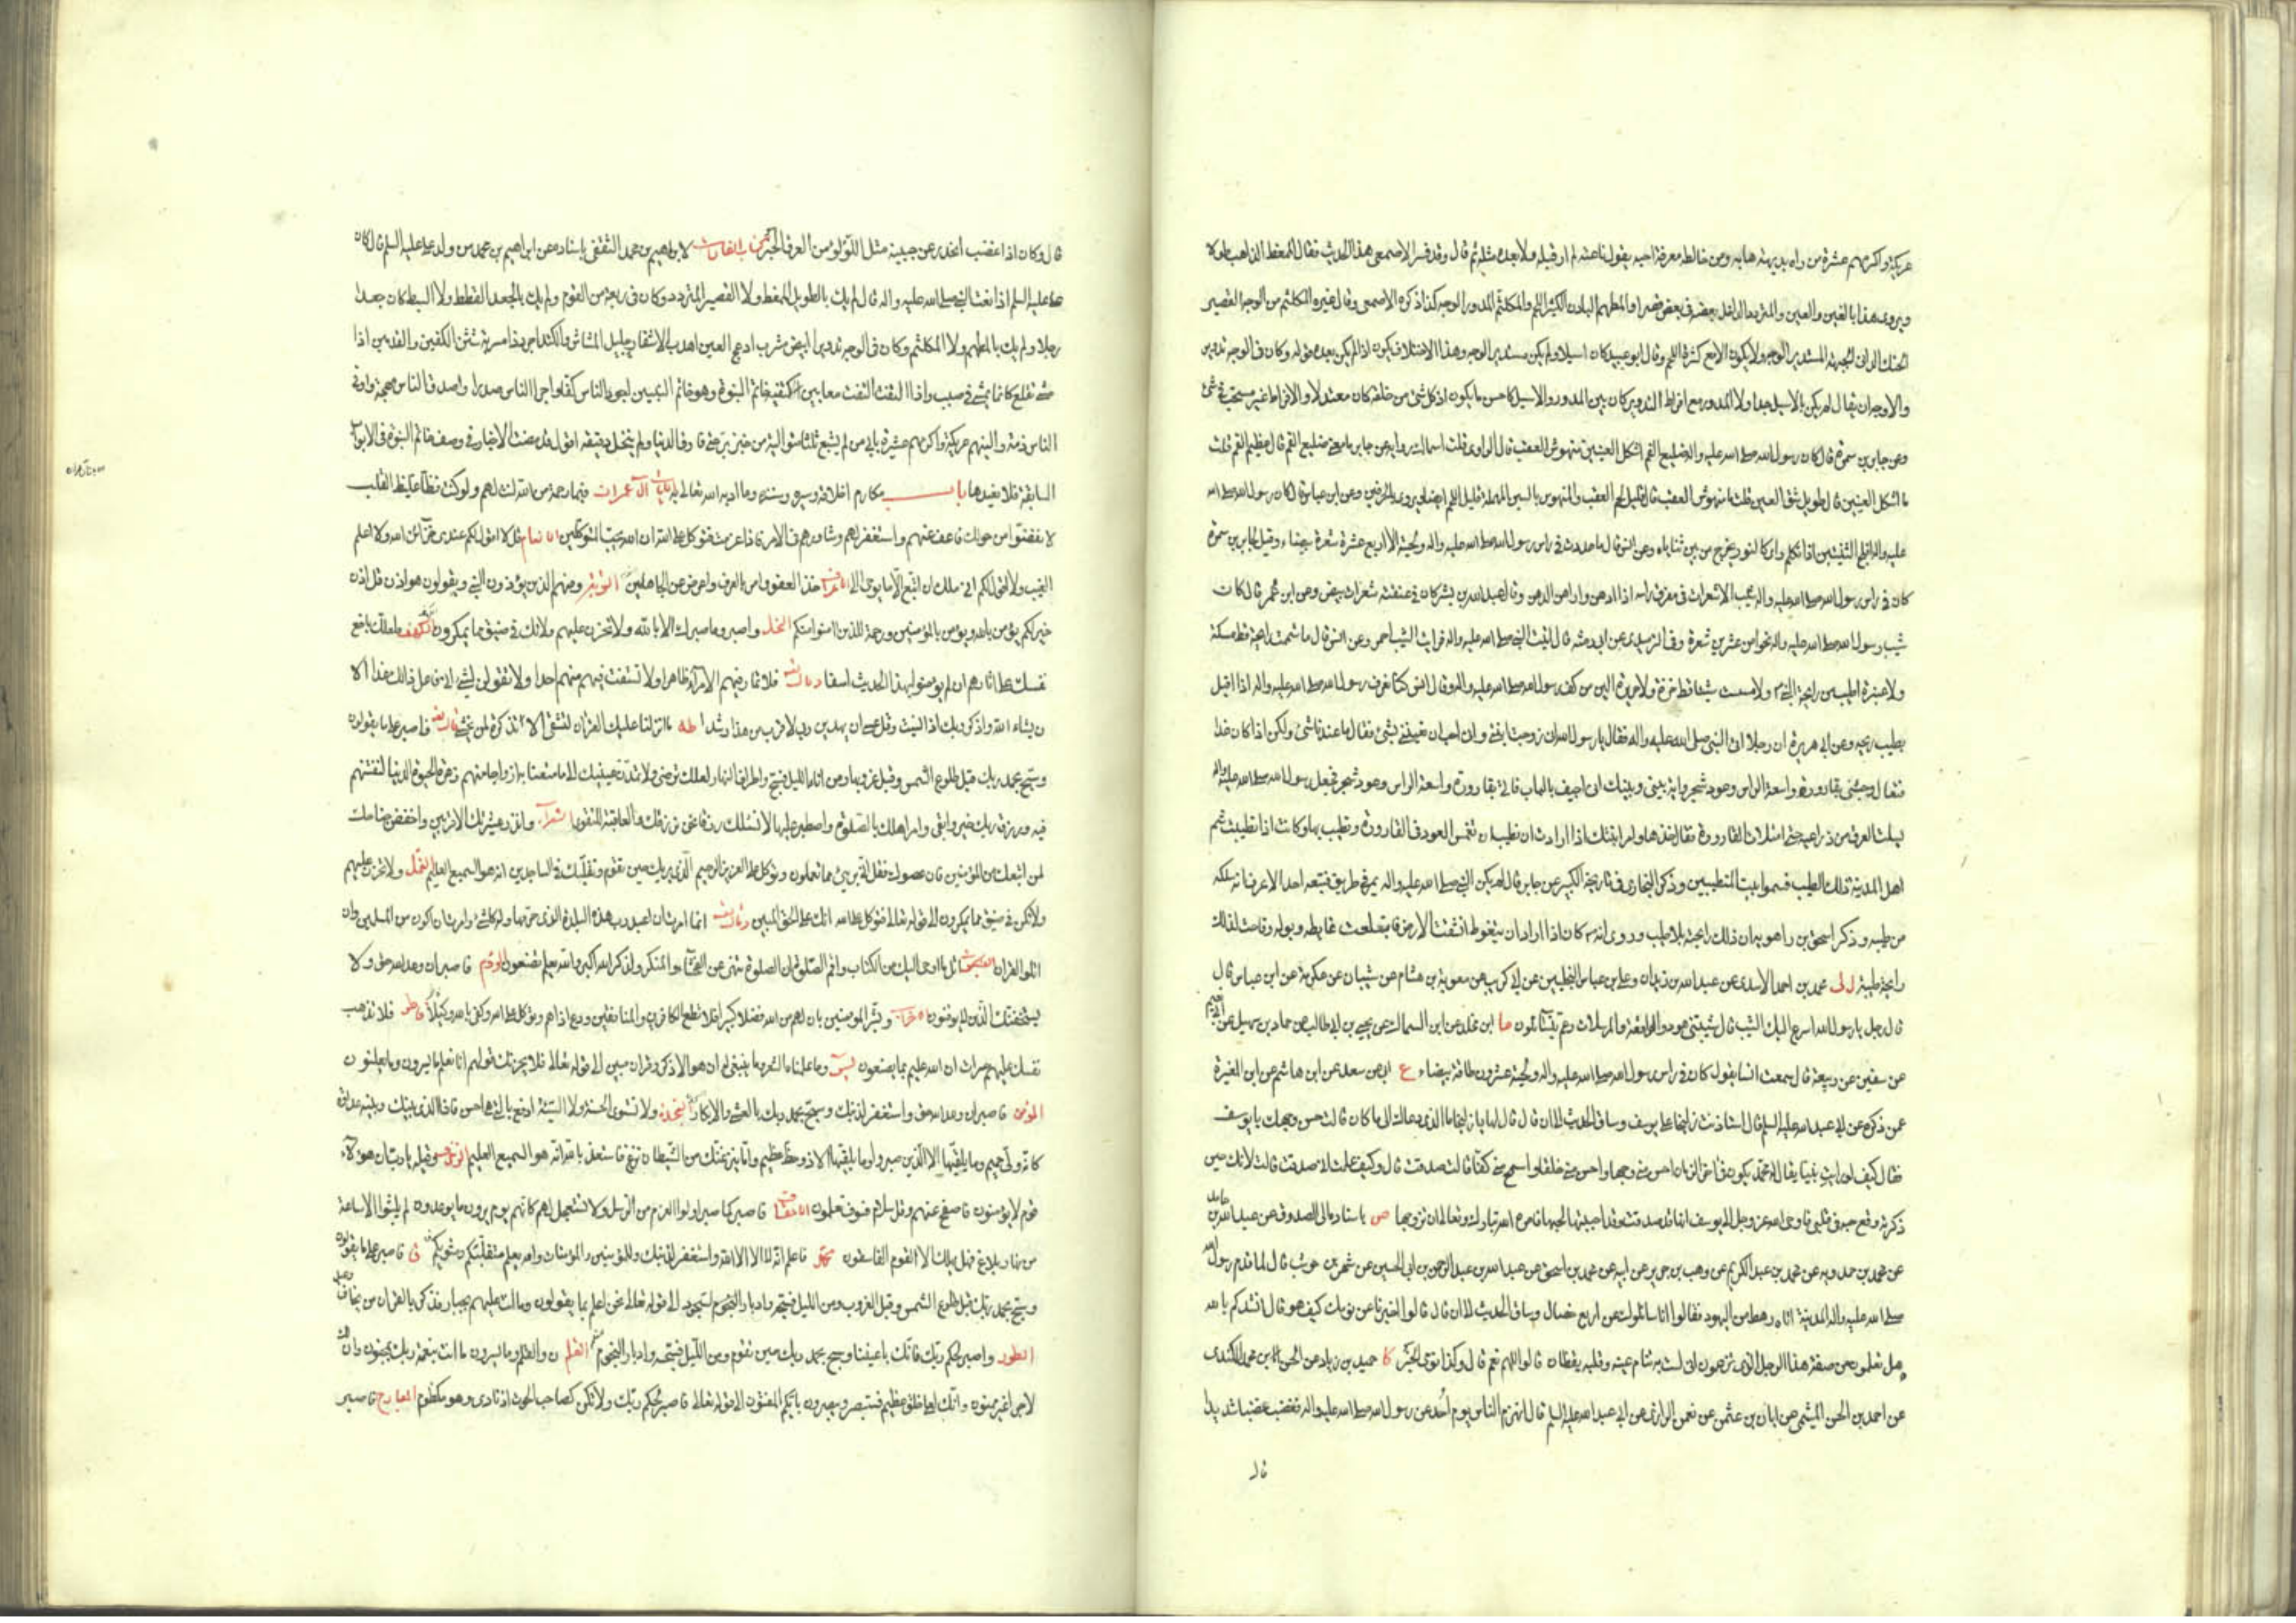 عريكة واكرمهم عشرة من راه بديهة هابه ومن خالطه معرفة احبه يقول ناعته لم ار قبله ولا بعده مثله ثم قال وقد فسر الاصمعي هذا الحديث فقال الممغط الذاهب طولا
ويروى هذا بالغين والعين والمتردد الداخل بعضه في بعض قصرا والمطهم البادن الكثير اللحم والمكلثم المدور الوجه كذا ذكره الاصمعي وقال غيره المكلثم من الوجه القصير
الحنك الداني الجبهة المستدير الوجه ولا يكون الا مع كثرة اللحم وقال ابو عبيد كان اسيلا ولم يكن مستدير الوجه وهذا الاختلاف يكون اذا لم يكن بعده قوله وكان في الوجه تدوير
والاوجه ان يقال لم يكن بالاسيل جدا ولا المدور مع افراط التدوير كان بين المدور والاسيل كاحسن ما يكون اذ كل شئ من خلقه كان معتدلا والافراط غير مستحب في شئ
وعن جابر بن سمرة قال كان رسول الله صلى الله عليه واله ضليع الفم اشكل العينين منهوش العقب قال الراوي قلت لسماك ما معنى ضليع الفم قال عظيم الفم قلت
ما اشكل العينين قال طويل شق العين قلت ما منهوش العقب قال قليل لحم العقب والمنهوس بالسين المهملة قليل اللحم ايضا وعن ابن عباس قال كان رسول الله صلى الله
عليه واله افلج الثنيتين اذا تكلم راى كالنور يخرج من بين ثناياه وعن انس قال ما عددت في راس رسول الله صلى الله عليه واله ولحيته الا اربع عشرة شعرة بيضاء وقيل لجابر بن سمرة
كان في راس رسول الله صلى الله عليه واله شيب الا شعرات في مفرق راسه اذا ادهن واراهن الدهن وقال عبد الله بن بشر كان في عنفقته شعرات بيض وعن ابن عمر قال كان
شيب رسول الله صلى الله عليه واله نحوا من عشرين شعرة وعن ابي رمثة قال اتيت النبي صلى الله عليه واله فرايت الشيب احمر وعن انس قال ما شممت رائحة قط مسكة
ولا عنبرة اطيب من رائحة النبي ص ولا مسست شيئا قط خزة ولا حريرة الين من كف رسول الله صلى الله عليه واله وقال انس كنا نعرف رسول الله صلى الله عليه واله اذا اقبل
بطيب ريحه وعن ابي هريرة ان رجلا اتى النبي صلى الله عليه واله فقال يا رسول الله اني زوجت ابنتي واني احب ان تعينني بشئ فقال ما عندنا شئ ولكن اذا كان غدا
فتعال وجئني بقارورة واسعة الراس وعود شجر واية بيني وبينك ان اجيف الباب فاتاه بقارورة واسعة الراس وعود شجر فجعل رسول الله صلى الله عليه واله
يسلت العرق من ذراعيه حتى امتلات القارورة فقال خذها وامر ابنتك اذا ارادت ان تطيب ان تغمس العود في القارورة وتطيب بها وكانت اذا تطيبت شم
اهل المدينة ذلك الطيب فسموا بيت المتطيبين وذكر البخاري في تاريخه الكبير عن جابر قال لم يكن النبي صلى الله عليه واله يمر في طريق فيتبعه احد الا عرف انه سلكه
من طيبه وذكر اسحق بن راهويه ان ذلك رائحته بلا طيب وروى انه ص كان اذا اراد ان يتغوط انشقت الارض فابتلعت غائطه وبوله وفاحت لذلك
رائحة طيبة ل لى محمد بن احمد الاسدي عن عبد الله بن زيدان وعلي بن عباس البجليين عن ابي كريب عن معوية بن هشام عن شيبان عن عكرمة عن ابن عباس قال
قال رجل يا رسول الله اسرع اليك الشيب قال شيبتني هود والواقعة والمرسلات وعم يتسائلون ما ابن مخلد عن ابن السماك عن يحيى بن ابي طالب عن حماد بن سهيل عن ابي نعيم
عن سفين عن ربيعة قال سمعت انسا يقول كان في راس رسول الله صلى الله عليه واله ولحيته عشرون طاقة بيضاء ع ابي عن سعد عن ابن هاشم عن ابن المغيرة
عمن ذكره عن ابي عبد الله عليه السلم قال استاذنت زليخا على يوسف وساق الحديث الى ان قال قال لها يا زليخا ما الذي دعاك الى ما كان قالت حسن وجهك يا يوسف
فقال كيف لو رايت نبيا يقال له محمد يكون في اخر الزمان احسن مني وجها واحسن مني خلقا واسمح مني كفا قالت صدقت قال وكيف علمت اني صدقت قالت لانك حين
ذكرته وقع حبه في قلبي فاوحى الله عز وجل الى يوسف انها قد صدقت وقد احببتها لحبها فامره الله تبارك وتعالى ان تزوجها ص باسناده الى الصدوق عن عبد الله بن حامد
عن محمد بن حمدويه عن محمد بن عبد الكريم عن وهب بن جرير عن ابيه عن محمد بن اسحق عن عبد الله بن عبد الرحمن بن ابي الحسين عن شهر بن حوشب قال لما قدم رسول الله
صلى الله عليه واله المدينة اتاه رهط من اليهود فقالوا انا سائلوك عن اربع خصال وساق الحديث الى ان قال قالوا اخبرنا عن نومك كيف هو قال انشدكم بالله
هل تعلمون من صفة هذا الرجل الذي تزعمون اني لست به تنام عينه وقلبه يقظان قالوا اللهم نعم قال وكذا نومي الخبر كا حميد بن زياد عن الحسن بن محمد الكندي
عن احمد بن الحسن الميثمي عن ابان بن عثمن عن نعمن الرازي عن ابي عبد الله عليه السلم قال انهزم الناس يوم احد عن رسول الله صلى الله عليه واله فغضب غضبا شديدا
قال
قال وكان اذا غضب انحدر عن جبينه مثل اللؤلؤ من العرق الخبر كتاب الغارات لابراهيم بن محمد الثقفي باسناده عن ابراهيم بن محمد من ولد علي عليه السلم قال كان
علي عليه السلم اذا نعت النبي صلى الله عليه واله قال لم يك بالطويل الممغط ولا القصير المتردد وكان ربعة من القوم ولم يك بالجعد القطط ولا السبط كان جعدا
رجلا ولم يك بالمطهم ولا المكلثم وكان في الوجه تدوير ابيض مشرب ادعج العين اهدب الاشفار جليل المشاش والكتد اجرد ذا مسربة شثن الكفين والقدمين اذا
مشى تقلع كانما يمشي في صبب واذا التفت التفت معا بين كتفيه خاتم النبوة وهو خاتم النبيين اجود الناس كفا واجرا الناس صدرا واصدق الناس لهجة واوفى
الناس ذمة والينهم عريكة واكرمهم عشيرة بابي من لم يشبع ثلثا متوالية من خبز بر حتى فارق الدنيا ولم ينخل دقيقه اقول قد مضت الاخبار في وصف خاتم النبوة في الابواب
السابقة فلا نعيدها باب مكارم اخلاقه وسيره وسننه وما ادبه الله تعالى به الايات آل عمران فبما رحمة من الله لنت لهم ولو كنت فظا غليظ القلب
لانفضوا من حولك فاعف عنهم واستغفر لهم وشاورهم في الامر فاذا عزمت فتوكل على الله ان الله يحب المتوكلين الانعام قل لا اقول لكم عندي خزائن الله ولا اعلم
الغيب ولا اقول لكم اني ملك ان اتبع الا ما يوحى الي الاعراف خذ العفو وامر بالعرف واعرض عن الجاهلين التوبة ومنهم الذين يؤذون النبي ويقولون هو اذن قل اذن
خير لكم يؤمن بالله ويؤمن للمؤمنين ورحمة للذين امنوا منكم النحل واصبر وما صبرك الا بالله ولا تحزن عليهم ولا تك في ضيق مما يمكرون الكهف فلعلك باخع
نفسك على اثارهم ان لم يؤمنوا بهذا الحديث اسفا وقال تعالى فلا تمار فيهم الا مرآء ظاهرا ولا تستفت فيهم منهم احدا ولا تقولن لشئ اني فاعل ذلك غدا الا
ان يشاء الله واذكر ربك اذا نسيت وقل عسى ان يهدين ربي لاقرب من هذا رشدا طه ما انزلنا عليك القران لتشقى الا تذكرة لمن يخشى وقال تعالى فاصبر على ما يقولون
وسبح بحمد ربك قبل طلوع الشمس وقبل غروبها ومن اناء الليل فسبح واطراف النهار لعلك ترضى ولا تمدن عينيك الى ما متعنا به ازواجا منهم زهرة الحيوة الدنيا لنفتنهم
فيه ورزق ربك خير وابقى وامر اهلك بالصلوة واصطبر عليها لا نسئلك رزقا نحن نرزقك والعاقبة للتقوى الشعراء وانذر عشيرتك الاقربين واخفض جناحك
لمن اتبعك من المؤمنين فان عصوك فقل اني برئ مما تعملون وتوكل على العزيز الرحيم الذي يريك حين تقوم وتقلبك في الساجدين انه هو السميع العليم النمل ولا تحزن عليهم
ولا تكن في ضيق مما يمكرون الى قوله تعالى فتوكل على الله انك على الحق المبين وقال تعالى انما امرت ان اعبد رب هذه البلدة الذي حرمها وله كل شئ وامرت ان اكون من المسلمين وان
اتلو القران العنكبوت اتل ما اوحي اليك من الكتاب واقم الصلوة ان الصلوة تنهى عن الفحشاء والمنكر ولذكر الله اكبر والله يعلم ما تصنعون الروم فاصبر ان وعد الله حق ولا
يستخفنك الذين لا يوقنون الاحزاب وبشر المؤمنين بان لهم من الله فضلا كبيرا ولا تطع الكافرين والمنافقين ودع اذاهم وتوكل على الله وكفى بالله وكيلا فاطر فلا تذهب
نفسك عليهم حسرات ان الله عليم بما يصنعون يس وما علمناه الشعر وما ينبغي له ان هو الا ذكر وقران مبين الى قوله تعالى فلا يحزنك قولهم انا نعلم ما يسرون وما يعلنون
المؤمن فاصبر ان وعد الله حق واستغفر لذنبك وسبح بحمد ربك بالعشي والابكار السجدة ولا تستوي الحسنة ولا السيئة ادفع بالتي هي احسن فاذا الذي بينك وبينه عداوة
كانه ولي حميم وما يلقيها الا الذين صبروا وما يلقيها الا ذو حظ عظيم واما ينزغنك من الشيطان نزغ فاستعذ بالله انه هو السميع العليم الزخرف وقيله يا رب ان هؤلآء
قوم لا يؤمنون فاصفح عنهم وقل سلام فسوف تعلمون الاحقاف فاصبر كما صبر اولوا العزم من الرسل ولا تستعجل لهم كانهم يوم يرون ما يوعدون لم يلبثوا الا ساعة
من نهار بلاغ فهل يهلك الا القوم الفاسقون محمد فاعلم انه لا اله الا الله واستغفر لذنبك وللمؤمنين والمؤمنات والله يعلم متقلبكم ومثويكم ق فاصبر على ما يقولون
وسبح بحمد ربك قبل طلوع الشمس وقبل الغروب ومن الليل فسبحه وادبار السجود الى قوله تعالى نحن اعلم بما يقولون وما انت عليهم بجبار فذكر بالقران من يخاف وعيد
الطور واصبر لحكم ربك فانك باعيننا وسبح بحمد ربك حين تقوم ومن الليل فسبحه وادبار النجوم القلم ن والقلم وما يسطرون ما انت بنعمة ربك بمجنون وان لك
لاجرا غير ممنون وانك لعلى خلق عظيم فستبصر ويبصرون بايكم المفتون الى قوله تعالى فاصبر لحكم ربك ولا تكن كصاحب الحوت اذ نادى وهو مكظوم المعارج فاصبر